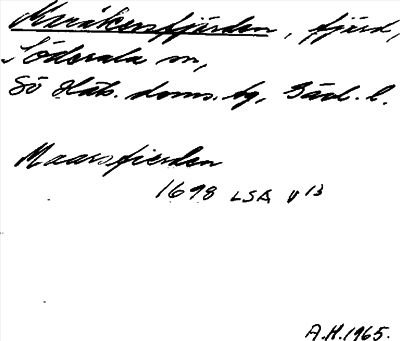 Maråkersfjärden, fjärd,
Söderala sn,
Sö Häls. doms. tg, Gävl. l.
Maarsfierden
1698 LSA V 13
A.H. 1965.